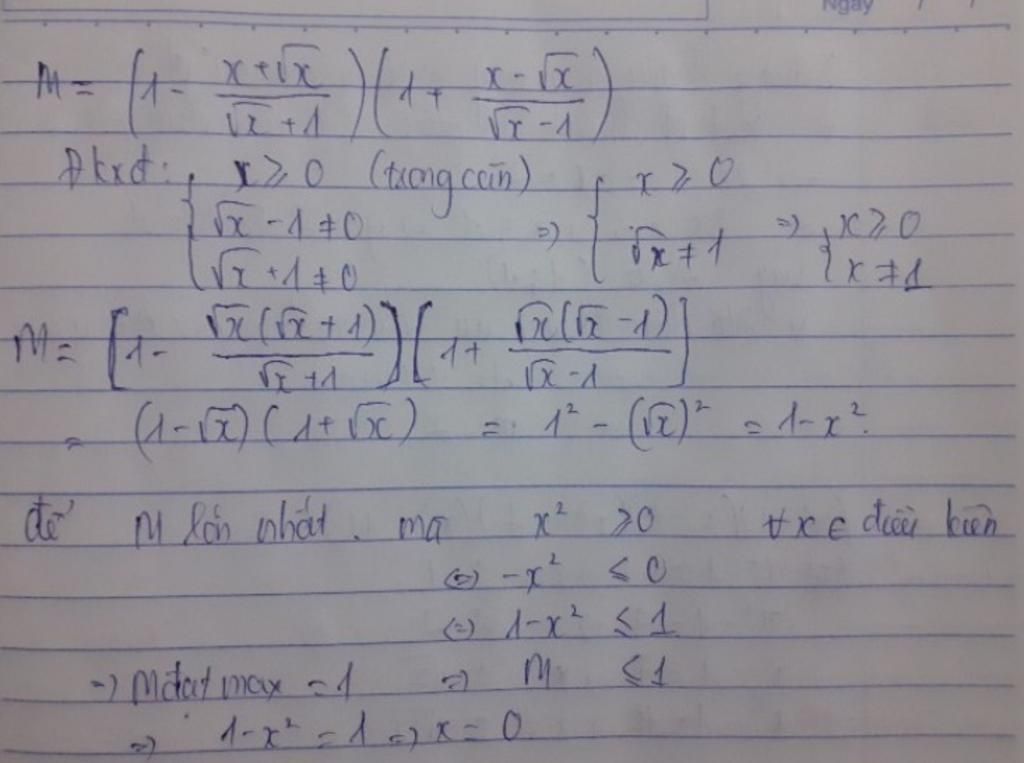 Ngày / /
M = (1 - (x+√x)/(√x+1))(1 + (x-√x)/(√x-1))
Đkxđ: { x ≥ 0 (trong căn) ; √x - 1 ≠ 0 ; √x + 1 ≠ 0 => { x ≥ 0 ; √x ≠ 1 => { x ≥ 0 ; x ≠ 1
M = [1 - √x(√x+1)/(√x+1)][1 + √x(√x-1)/(√x-1)]
= (1-√x)(1+√x) = 1² - (√x)² = 1-x².
để M lớn nhất. mà x² ≥0 ∀x ∈ điều kiện
<=> -x² ≤ 0
<=> 1-x² ≤ 1
=> M đạt max = 1 => M ≤1
=> 1-x² = 1 => x = 0